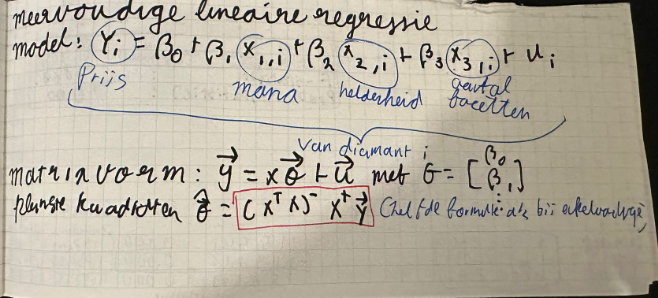 meervoudige lineaire regressie
model: Yi = β0 + β1 x1,i + β2 x2,i + β3 x3,i + ui
Prijs massa helderheid aantal
facetten
van diamant i
matrixvorm: y⃗ = xθ⃗ + u⃗ met θ = [β0 β1 ⋮]
kleinste kwadraten θ̂ = (X⁺X)⁻ X⁺ y⃗ (zelfde formule als bij enkelvoudige)